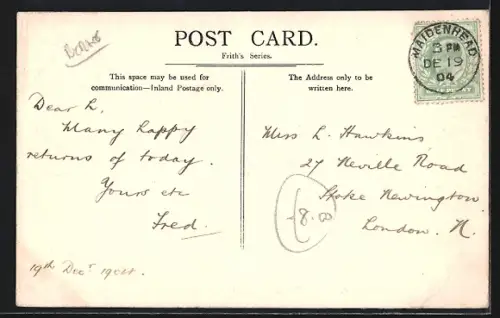 POST CARD.
Frith's Series.
This space may be used for
communication—Inland Postage only.
The Address only to be
written here.
MAIDENHEAD
3 PM
DE 19
04
Dear L.
Many happy
returns of today.
Yours etc
Fred.
19th Decr 1904.
Miss L. Hawkins
27 Neville Road
Stoke Newington
London. N.
8.00